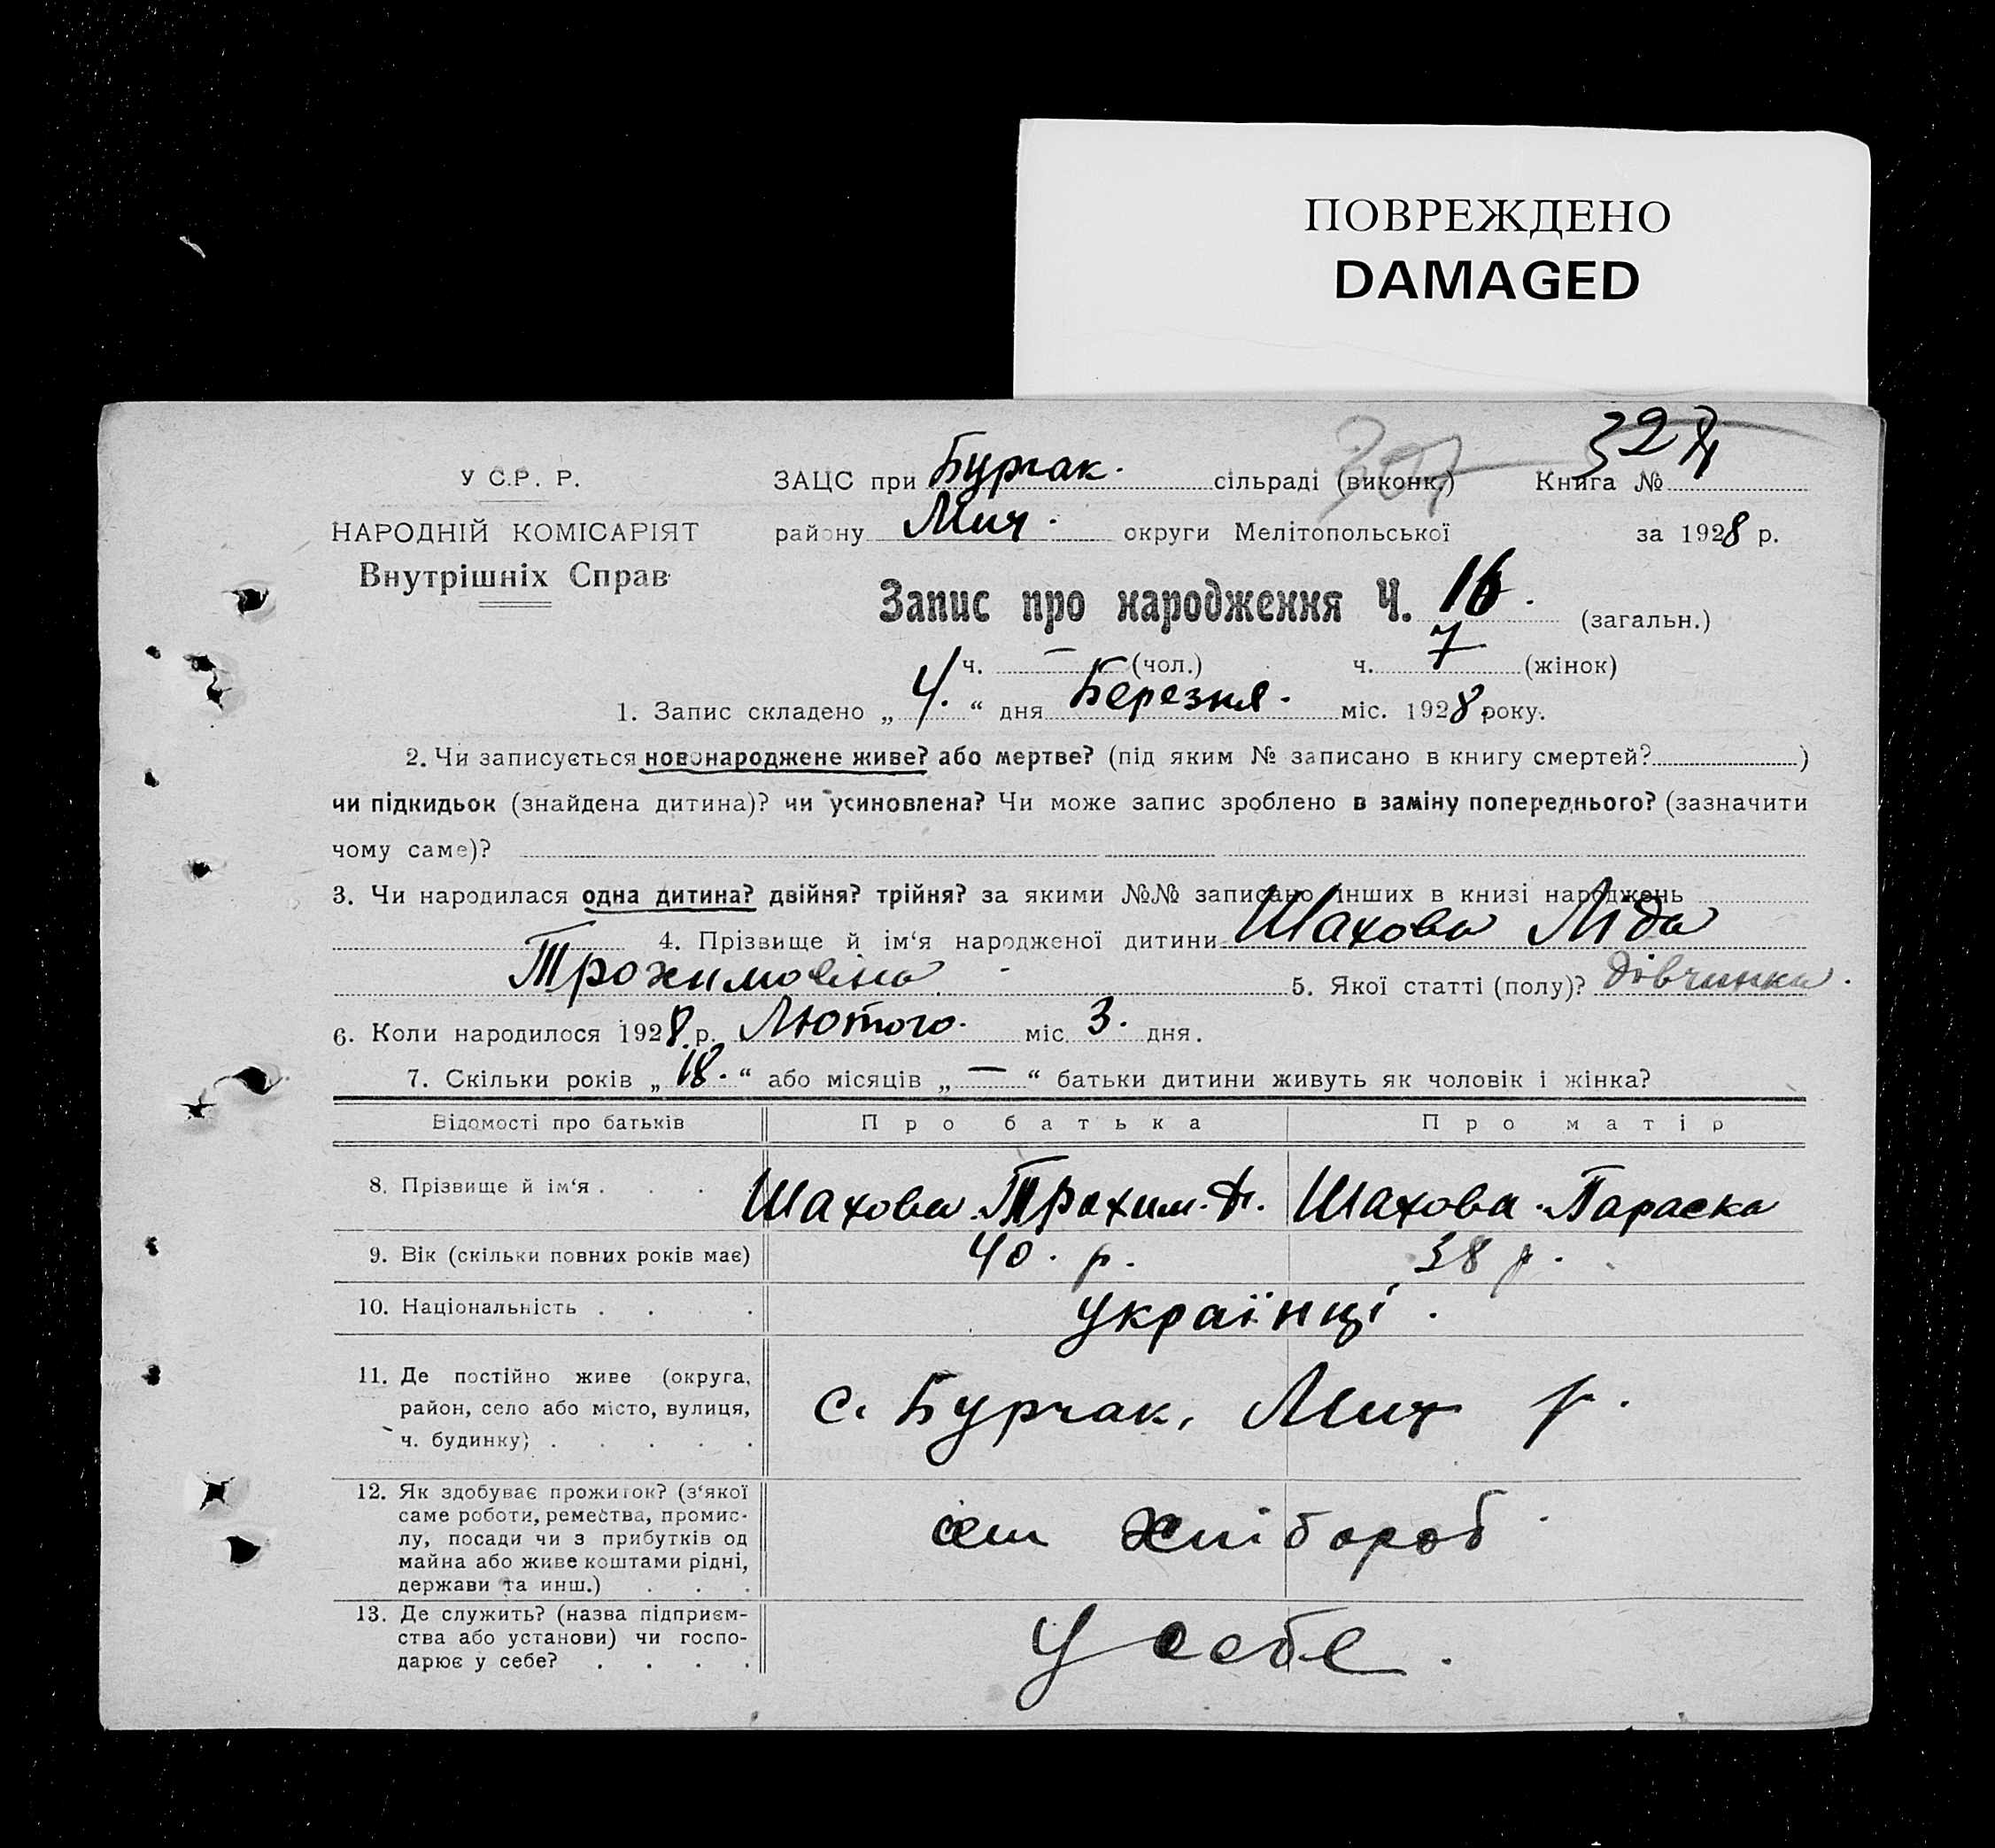 ПОВРЕЖДЕНО
DAMAGED
У С.Р. Р.
ЗАЦС при Бурчак. сільраді (виконк.) Книга №
НАРОДНІЙ КОМІСАРІЯТ
району Мич. округи Мелітопольської за 1928 р.
Внутрішніх Справ
Запис про народження Ч. 16. (загальн.)
ч. — (чол.) ч. 7 (жінок)
1. Запис складено „4.“ дня Березня. міс. 1928 року.
2. Чи записується новонароджене живе? або мертве? (під яким № записано в книгу смертей? )
чи підкидьок (знайдена дитина)? чи усиновлена? Чи може запис зроблено в заміну попереднього? (зазначити
чому саме)?
3. Чи народилася одна дитина? двійня? трійня? за якими №№ записано інших в книзі народжень
4. Прізвище й ім'я народженої дитини Шахова Ліда
Трохимовна 5. Якої статті (полу)? дівчинка.
6. Коли народилося 1928 р. Лютого. міс. 3. дня.
7. Скільки років „18.“ або місяців „—“ батьки дитини живуть як чоловік і жінка?
Відомості про батьків Про батька Про матір
8. Прізвище й ім'я . . . Шахова Трохим. Шахова Параска
9. Вік (скільки повних років має) 40. р. 38 р.
10. Національність . . . . українці.
11. Де постійно живе (округа,
район, село або місто, вулиця,
ч. будинку) . . . . . с. Бурчак, Мич р.
12. Як здобуває прожиток? (з'якої
саме роботи, ремества, промис-
лу, посади чи з прибутків од
майна або живе коштами рідні,
держави та инш.) . . . хлібороб
13. Де служить? (назва підприєм-
ства або установи) чи госпо-
дарює у себе? . . . . У себе.